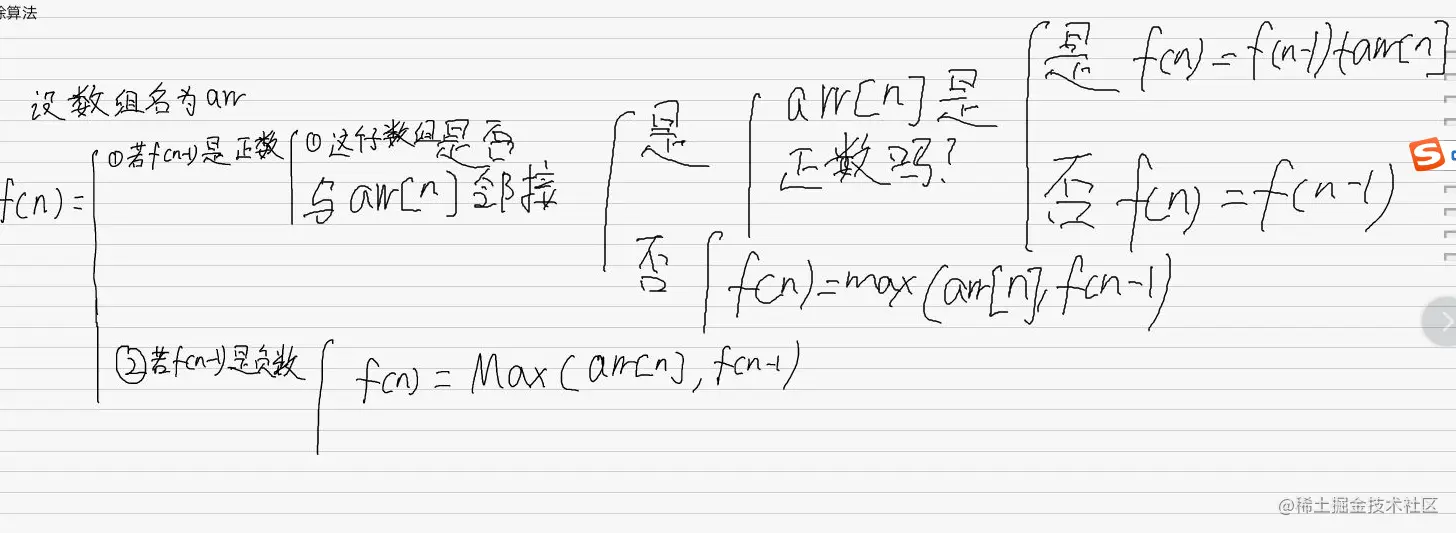 除算法
设数组名为arr
f(n) =
①若f(n-1)是正数
①这行数组是否
与arr[n]邻接
是
arr[n]是
正数吗?
是 f(n) = f(n-1)+arr[n]
否 f(n) = f(n-1)
否
f(n)=max(arr[n], f(n-1)
②若f(n-1)是负数
f(n) = Max(arr[n], f(n-1)
S
@稀土掘金技术社区